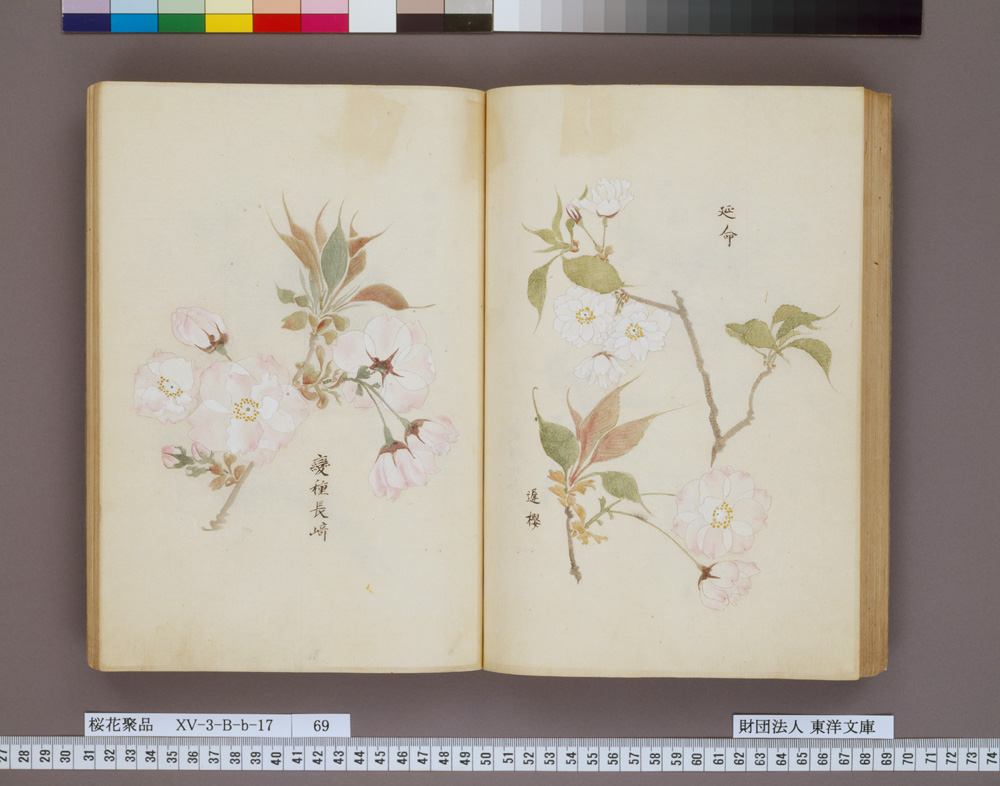 延命
遅櫻
變種長﨑
桜花聚品 XV-3-B-b-17 69
財団法人 東洋文庫
27 28 29 30 31 32 33 34 35 36 37 38 39 40 41 42 43 44 45 46 47 48 49 50 51 52 53 54 55 56 57 58 59 60 61 62 63 64 65 66 67 68 69 70 71 72 73 74